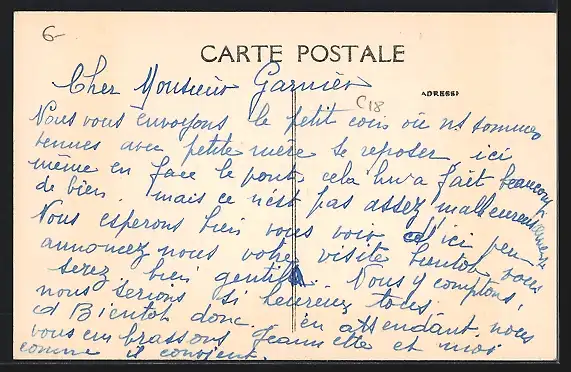 6-
CARTE POSTALE
ADRESSE
C18
Cher Monsieur Garnier
Nous vous envoyons le petit coin où ns sommes
venues avec petite mère se reposer, ici
même en face le pont, cela lui a fait beaucoup
de bien. mais ce n'est pas assez malheureusement
Nous esperons bien vous voir d'ici peu
annoncez nous votre visite bientôt, vous
serez bien gentil. Nous y comptons,
nous serions si heureux tous.
à Bientôt donc. en attendant, nous
vous embrassons Jeannette et moi
comme il convient.